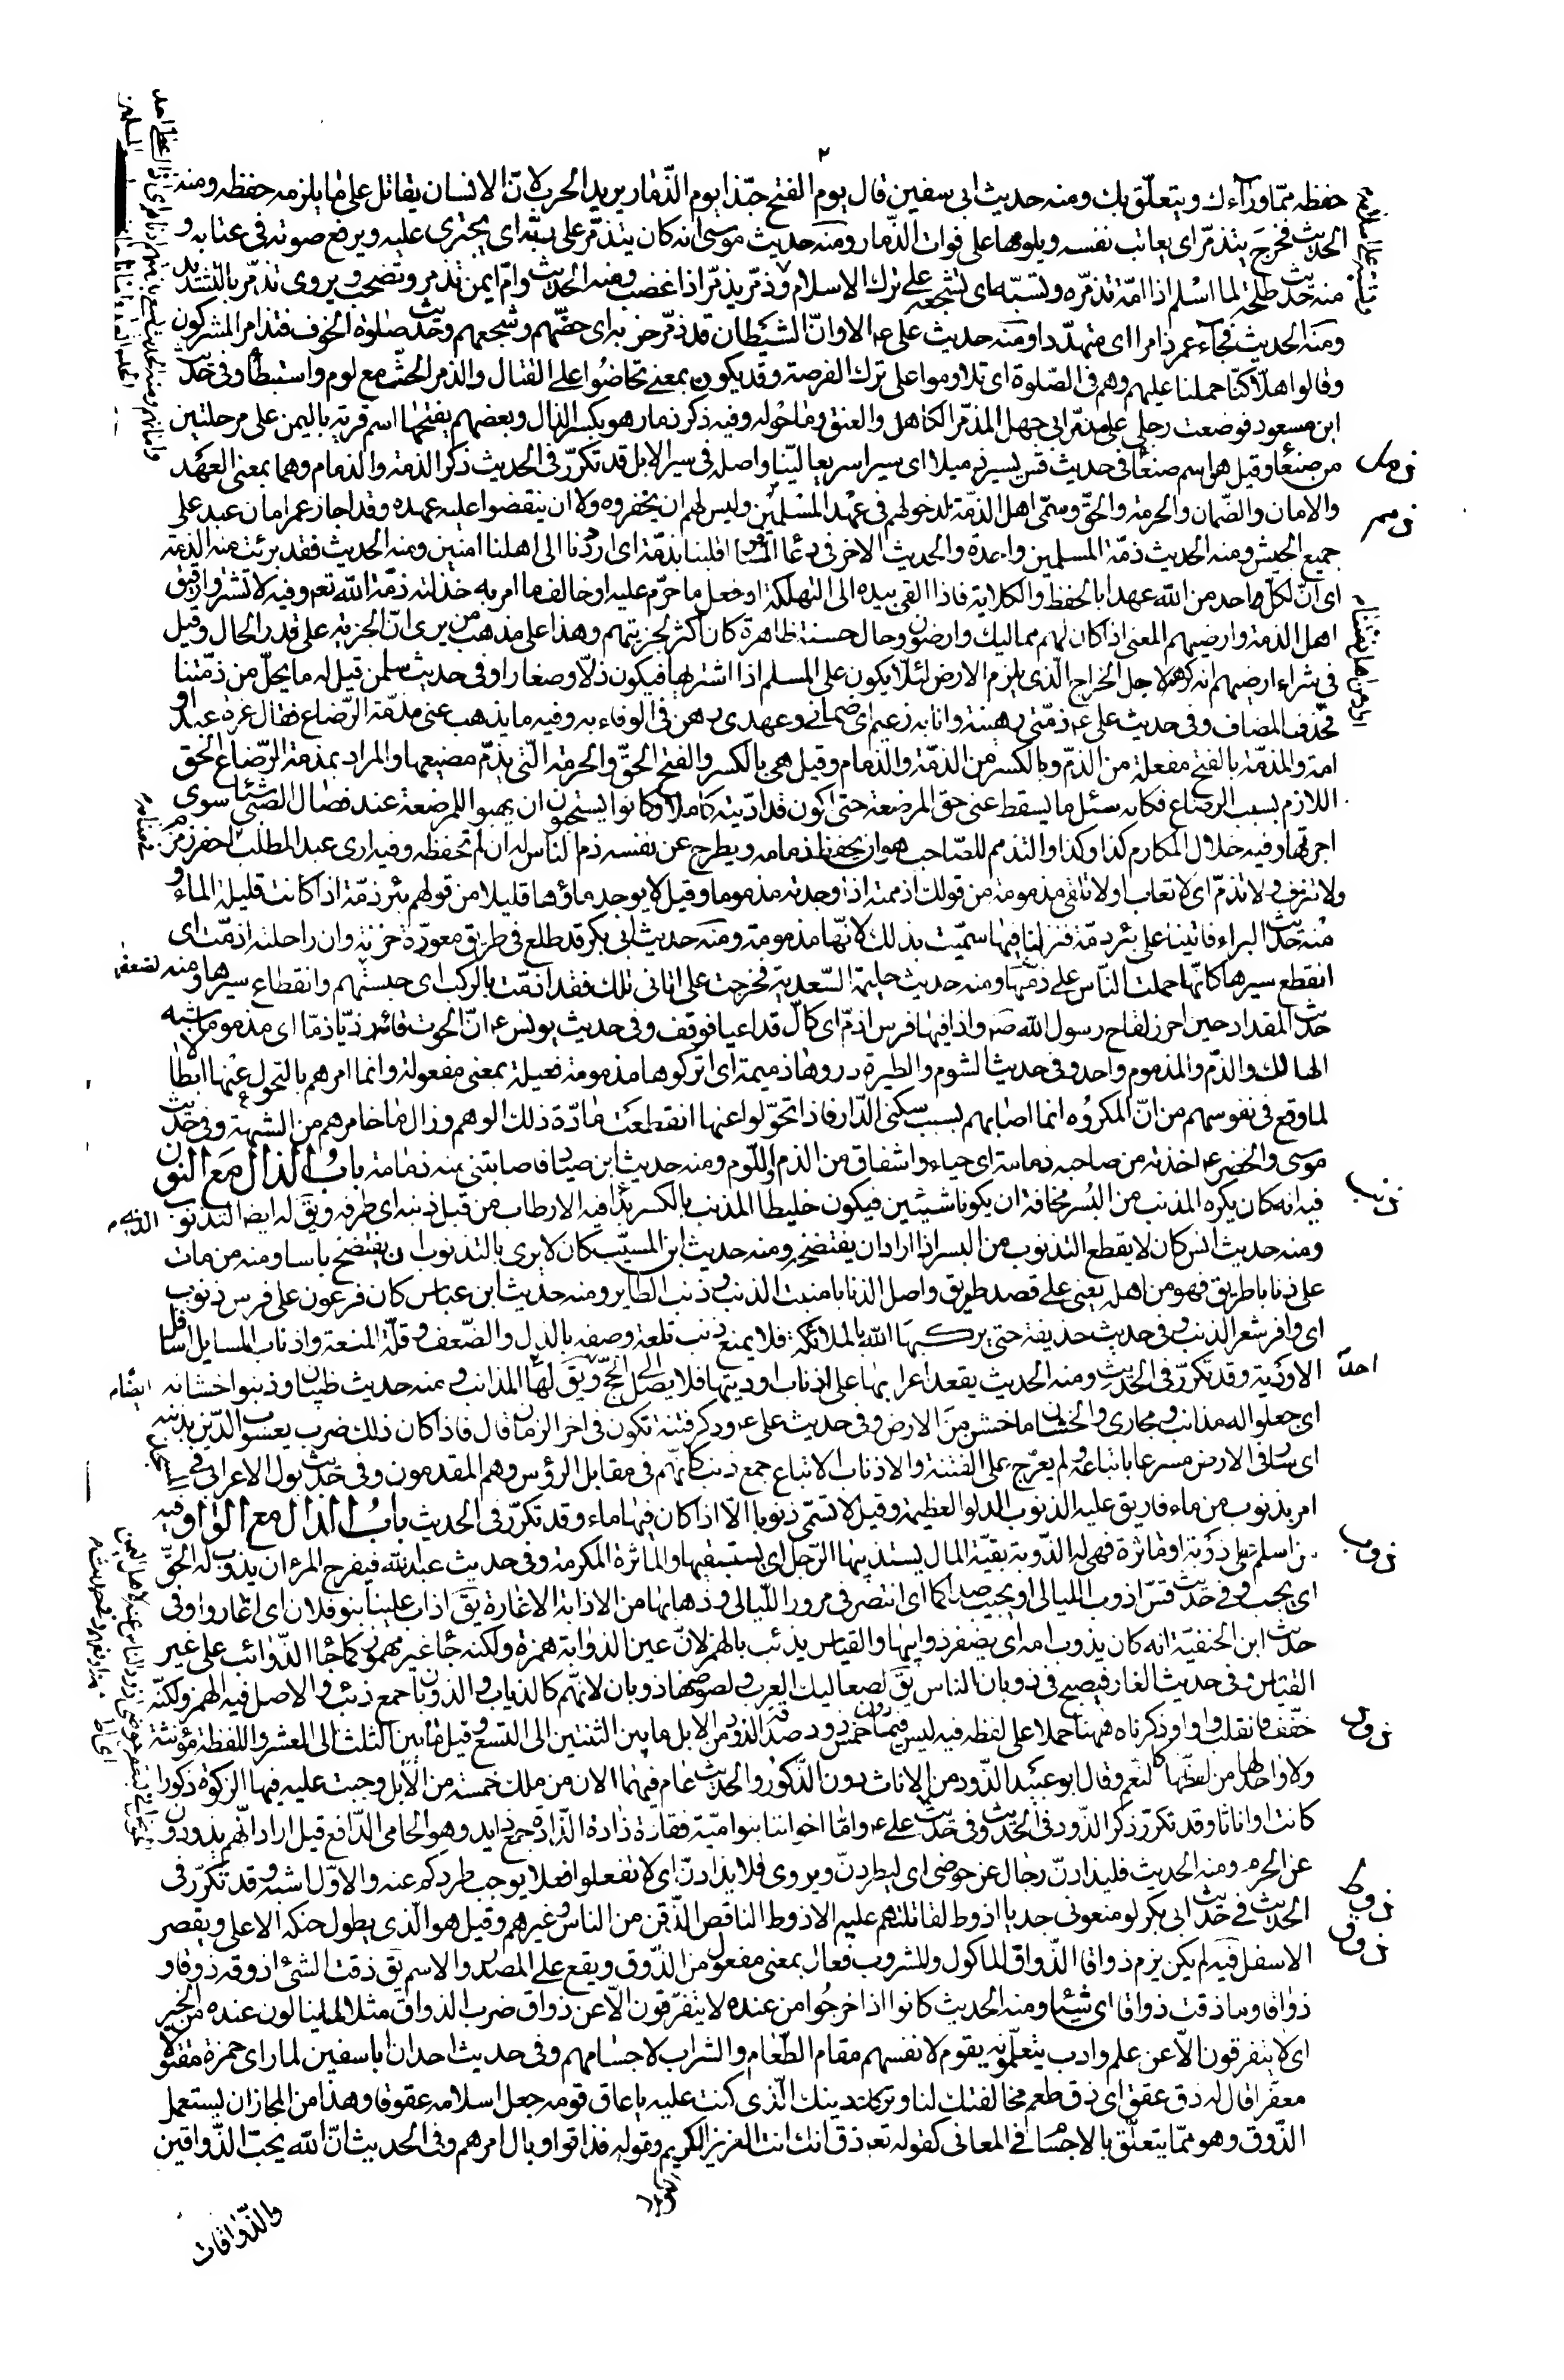 حفظه ممّا ورآءك ويتعلّق بك ومنه حديث ابى سفين قال يوم الفتح حبّذا يوم الذّمار يريد الحرب لانّ الانسان يقاتل على ما يلزمه حفظه ومنه
الحديث فخرج يتذمّر اى يعاتب نفسه ويلومها على فوات الذّمار ومنه حديث موسى انه كان يتذمّر على ربّه اى يجترى عليه ويرفع صوته فى عتابه و
منه حديث طلحة لما اسلم اذا امّه تذمّره وتسبّه اى تشجعه على ترك الاسلام وذمّر يذمّر اذا غضب ومنه الحديث وامّ ايمن تذمر وتصخب ويروى تذمّر بالتشديد
ومنه الحديث فجآء عمر ذامرا اى متهدّدا ومنه حديث على ع الا وانّ الشيطان قد ذمّر حزبه اى حضّهم وشجعهم وحديث صلوة الخوف فتذامر المشركون
وقالوا هلّا كنّا حملنا عليهم وهم فى الصّلوة اى تلاوموا على ترك الفرصة وقد يكون بمعنى تحاضّوا على القتال والذمر الحثّ مع لوم واستبطاء وفى حديث
ابن مسعود فوضعت رجلى على مذمّر ابى جهل المذمّر الكاهل والعنق وما حوله وفيه ذكر ذمار هو بكسر الذال وبعضهم يفتحها اسم قرية باليمن على مرحلتين
من صنعا وقيل هو اسم صنعا فى حديث قس يسير ذميلا اى سيرا سريعا ليّنا واصله فى سير الابل قد تكرّر فى الحديث ذكر الذمة والذمام وهما بمعنى العهد
ذمل
والامان والضّمان والحرمة والحقّ وسمّى اهل الذمّة لدخولهم فى عهد المسلمين وليس لهم ان يخفروه ولا ان ينقضوا عليه عهده وقد اجاز عمر امان عبد على
ذمم
جميع الجيش ومنه الحديث ذمّة المسلمين واحدة والحديث الاخر فى دعا المسافر اقلبنا بذمّة اى ارددنا الى اهلنا امنين ومنه الحديث فقد برئت منه الذمة
اى انّ لكلّ واحد من الله عهدا بالحفظ والكلاية فاذا القى بيده الى التهلكة او فعل ما حرّم عليه او خالف ما امر به خذلته ذمّة الله تعم وفيه لا تشتروا رقيق
اهل الذمة وارضيهم المعنى اذا كان لهم مماليك وارضون وحال حسنة ظاهرة كان اكثر لجزيتهم وهذا على مذهب من يرى انّ الجزية على قدر الحال وقيل
فى شراء ارضيهم انه كرهه لاجل الخراج الّذى يلزم الارض لئلّا يكون على المسلم اذا اشتراها فيكون ذلّا وصغارا وفى حديث سلمن قيل له ما يحلّ من ذمّتنا
فحذف المضاف وفى حديث على ع ذمّتى رهينة وانا به زعيم اى ضمانى وعهدى رهن فى الوفاء به وفيه ما يذهب عنى مذمّة الرّضاع فقال غرة عبد او
امة والمذمّة بالفتح مفعلة من الذمّ وبالكسر من الذمّة والذمام وقيل هى بالكسر والفتح الحقّ والحرمة الّتى يذمّ مضيعها والمراد بمذمة الرّضاع الحق
اللازم بسبب الرضاع فكانه سئل ما يسقط عنى حق المرضعة حتى اكون قد ادّيته كاملا وكانوا يستحبون ان يهبوا للمرضعة عند فصال الصّبى شيئا سوى
اجرتها وفيه خلال المكارم كذا وكذا والتذمم للصّاحب هو ان يحفظ ذمامه ويطرح عن نفسه ذم الناس له ان لم تحفظه وفيه ارى عبد المطلب احفر زمزم
ولا تنزف ولا تذمّ اى لا تعاب او لا تلقى مذمومة من قولك اذممته اذا وجدته مذموما وقيل لا يوجد ماؤها قليلا من قولهم بئر ذمّة اذا كانت قليلة الماء و
منه حديث البراء فاتينا على بئر ذمّة فنزلنا فيها سمّيت بذلك لانّها مذمومة ومنه حديث ابى بكر قد طلع فى طريق معورّة حزنة وان راحلته اذمّت اى
انقطع سيرها كانّها حملت النّاس على ذمّها ومنه حديث حليمة السّعدية فخرجت على اتانى تلك فقد اذمّت بالركب اى حبستهم وانقطاع سيرها ومنه
لضعفها
حديث المقداد حين احرز لقاح رسول الله ص واذا فيها فرس اذمّ اى كالّ قد اعيا فوقف وفى حديث يونس ع انّ الحوت قائه رذيّا ذمّا اى مذموما شبه
الهالك والذّم والمذموم واحد وفى حديث الشوم والطيرة ذروها ذميمة اى اتركوها مذمومة فعيلة بمعنى مفعولة وانما امرهم بالتحول عنها ابطالا
لما وقع فى نفوسهم من انّ المكروه انما اصابهم بسبب سكنى الدّار فاذا تحوّلوا عنها انقطعت مادّة ذلك الوهم وزال ما خامرهم من الشبهة وفى حديث
موسى والخضر ع اخذته من صاحبه ذمامة اى حياء واشفاق من الذم واللّوم ومنه حديث ابن صياد فاصابتنى منه ذمامة باب الذال مع النون
فيه انه كان يكره المذنب من البسر مخافة ان يكونا شيئين فيكون خليطا المذنب بالكسر بدا فيه الارطاب من قبل ذنبه اى طرفه ويق له ايضا التذنوب
ذنب
ومنه حديث انس كان لا يقطع التذنوب من البسر اذا اراد ان يفتضخه ومنه حديث ابن المسيّب كان لا يرى بالتذنوب ان يفتضخ باسا ومنه من مات
على ذنابا طريق فهو من اهله يعنى على قصد طريق واصل الذنابا منبت الذنب وذنب الطاير ومنه حديث ابن عباس كان فرعون على فرس ذنوب
اى وافر شعر الذنب وفى حديث حذيفة حتى يركبها الله بالملائكة فلا يمنع ذنب تلعة وصفه بالذل والضّعف وقلّة المنعة واذناب المسايل اسافل
الاودية وقد تكرّر فى الحديث ومنه الحديث يقعد اعرابها على اذناب اوديتها فلا يصل الى الحجّ احد ويق لها المذانب ومنه حديث ظبيان وذنبوا خشانه
ايضا
اى جعلوا له مذانب ومجارى والخشان ما خشن من الارض وفى حديث على ع وذكر فتنة تكون فى اخر الزمان قال فاذا كان ذلك ضرب يعسوب الدّين بذنبه
اى سار فى الارض مسرعا باتباعه ولم يعرّج على الفتنة والاذناب الاتباع جمع ذنب كانّهم فى مقابل الرؤس وهم المقدمون وفى حديث بول الاعرابى فى المسجد
امر بذنوب من ماء فاريق عليه الذنوب الدلو العظيمة وقيل لا تسمّى ذنوبا الّا اذا كان فيها ماء وقد تكرّر فى الحديث باب الذال مع الواو فيه
من اسلم على ذوبة او ماثرة فهى له الذّوبة بقيّة المال يستذيبها الرّجل اى يستبقيها والماثرة المكرمة وفى حديث عبد الله فيفرح المرء ان يذوب له الحقّ
ذوب
اى يجب وفى حديث قسّ اذوب الليالى او يجيب صداكما اى انتظر فى مرور اللّيالى وذهابها من الاذابة الاغارة يق اذاب علينا بنو فلان اى اغاروا وفى
حديث ابن الحنفيّة انه كان يذوب امه اى يضفر ذوايبها والقياس يذئب بالهمز لانّ عين الذوابة همزة ولكنه جا غير مهموز كما جا الذّوائب على غير
القياس وفى حديث الغار فيصبح فى ذوبان الناس يق لصعاليك العرب ولصوصها ذوبان لانهم كالذياب والذوبان جمع ذئب والاصل فيه الهمز ولكنّه
خفّف فانقلب واوا وذكرناه ههنا حملا على لفظه فيه ليس فيما دون خمس ذود صدقة الذود من الابل ما بين الثنتين الى التسع وقيل ما بين الثلث الى العشر واللفظة مؤنثة
ذود
ولا واحد لها من لفظها كالنعم وقال ابو عبيد الذّود من الاناث دون الذكور والحديث عام فيهما الان من ملك خمسة من الابل وجبت عليه فيها الزكوة ذكورا
كانت او اناثا وقد تكرّر ذكر الذّود فى الحديث وفى حديث على ع وامّا اخواننا بنو اميّة فقادة ذادة الذّادة جمع ذايد وهو الحامى الدّافع قيل اراد انّهم يذودون
عن الحرم ومنه الحديث فليذادنّ رجال عن حوضى اى ليطردنّ ويروى فلا يذادنّ اى لا تفعلوا فعلا يوجب طردكم عنه والاوّل اشبه وقد تكرّر فى
الحديث فى حديث ابى بكر لو منعونى جديا اذوط لقاتلتهم عليه الاذوط الناقص الذّقن من الناس وغيرهم وقيل هو الّذى يطول حنكه الاعلى ويقصر
ذوط
الاسفل فيه لم يكن يزم ذواقا الذّواق الماكول والمشروب فعال بمعنى مفعول من الذّوق ويقع على المصدر والاسم يق ذقت الشئ اذوقه ذوقا و
ذوق
ذواقا وما ذقت ذواقا اى شيئا ومنه الحديث كانوا اذا خرجوا من عنده لا يتفرّقون الّا عن ذواق ضرب الذواق مثلا لما ينالون عنده من الخير
اى لا يتفرقون الّا عن علم وادب يتعلّمونه يقوم لانفسهم مقام الطّعام والشراب لاجسامهم وفى حديث احد ان اباسفين لما راى حمزة مقتولا
معفّرا قال له ذق عقق اى ذق طعم مخالفتك لنا وتركك دينك الّذى كنت عليه يا عاق قومه جعل اسلامه عقوقا وهذا من المجاز ان يستعمل
الذّوق وهو ممّا يتعلّق بالاجسام فى المعانى كقوله تعم ذق انك انت العزيز الكريم وقوله فذاقوا وبال امرهم وفى الحديث انّ الله لا يحبّ الذّواقين
والذّواقات